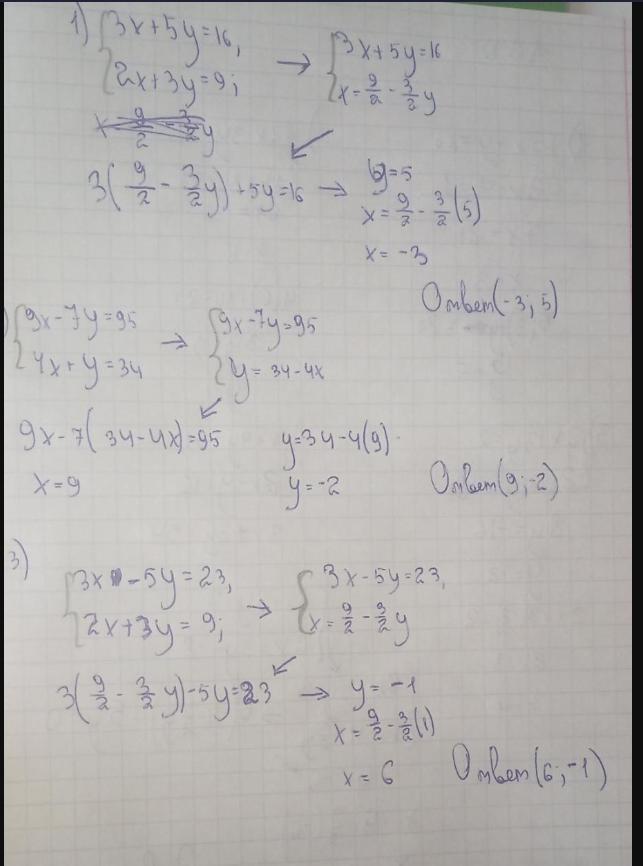 1) 3x+5y=16, → 3x+5y=16
2x+3y=9; x=9/2-3/2y
x 9/2-3/2y
3(9/2-3/2y)+5y=16 → y=5
x=9/2-3/2(5)
x=-3
Ответ(-3; 5)
) 9x-7y=95 → 9x-7y=95
4x+y=34 y=34-4x
9x-7(34-4x)=95 y=34-4(9)
x=9 y=-2 Ответ(9;-2)
3)
3x-5y=23, → 3x-5y=23,
2x+3y=9; x=9/2-3/2y
3(9/2-3/2y)-5y=23 → y=-1
x=9/2-3/2(1)
x=6 Ответ(6;-1)